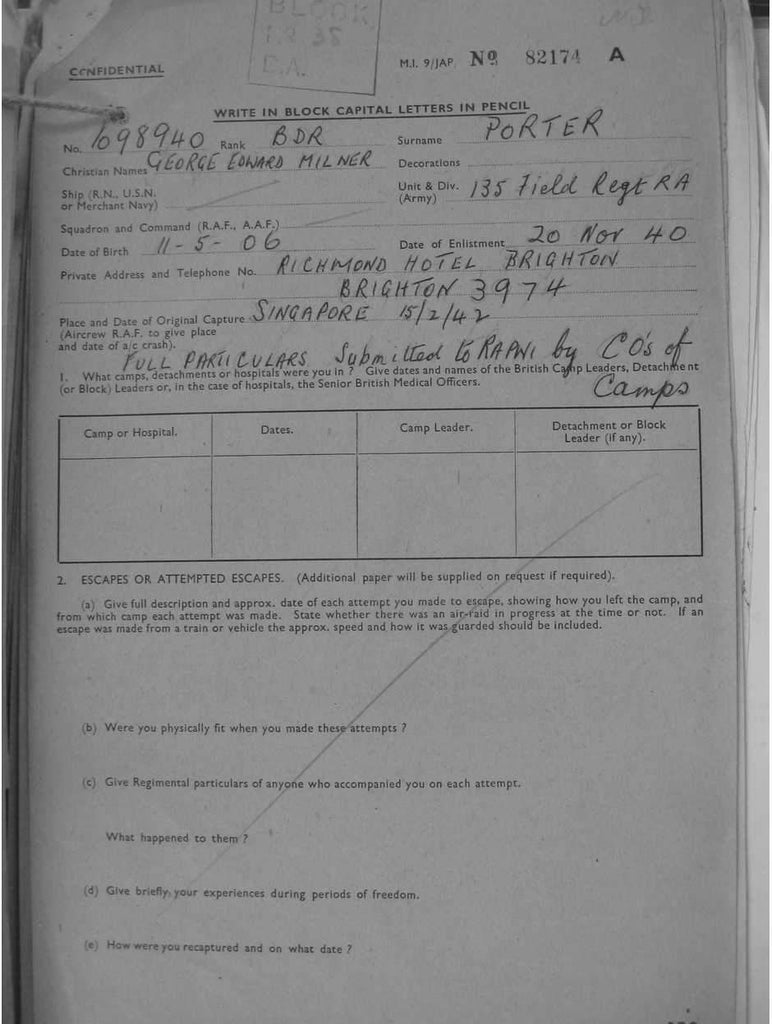 BLOCK
CONFIDENTIAL
M.I. 9/JAP No 82174 A
WRITE IN BLOCK CAPITAL LETTERS IN PENCIL
No. 1098940 Rank BDR Surname PORTER
Christian Names GEORGE EDWARD MILNER Decorations
Ship (R.N., U.S.N. or Merchant Navy) Unit & Div. (Army) 135 Field Regt RA
Squadron and Command (R.A.F., A.A.F.)
Date of Birth 11-5-06 Date of Enlistment 20 Nov 40
Private Address and Telephone No. RICHMOND HOTEL BRIGHTON
BRIGHTON 3974
Place and Date of Original Capture SINGAPORE 15/2/42
(Aircrew R.A.F. to give place
and date of a/c crash).
FULL PARTICULARS Submitted to RAPWI by CO's of
Camps
1. What camps, detachments or hospitals were you in ? Give dates and names of the British Camp Leaders, Detachment
(or Block) Leaders or, in the case of hospitals, the Senior British Medical Officers.
Camp or Hospital. Dates. Camp Leader. Detachment or Block
Leader (if any).
2. ESCAPES OR ATTEMPTED ESCAPES. (Additional paper will be supplied on request if required).
(a) Give full description and approx. date of each attempt you made to escape, showing how you left the camp, and
from which camp each attempt was made. State whether there was an air-raid in progress at the time or not. If an
escape was made from a train or vehicle the approx. speed and how it was guarded should be included.
(b) Were you physically fit when you made these attempts ?
(c) Give Regimental particulars of anyone who accompanied you on each attempt.
What happened to them ?
(d) Give briefly, your experiences during periods of freedom.
(e) How were you recaptured and on what date ?